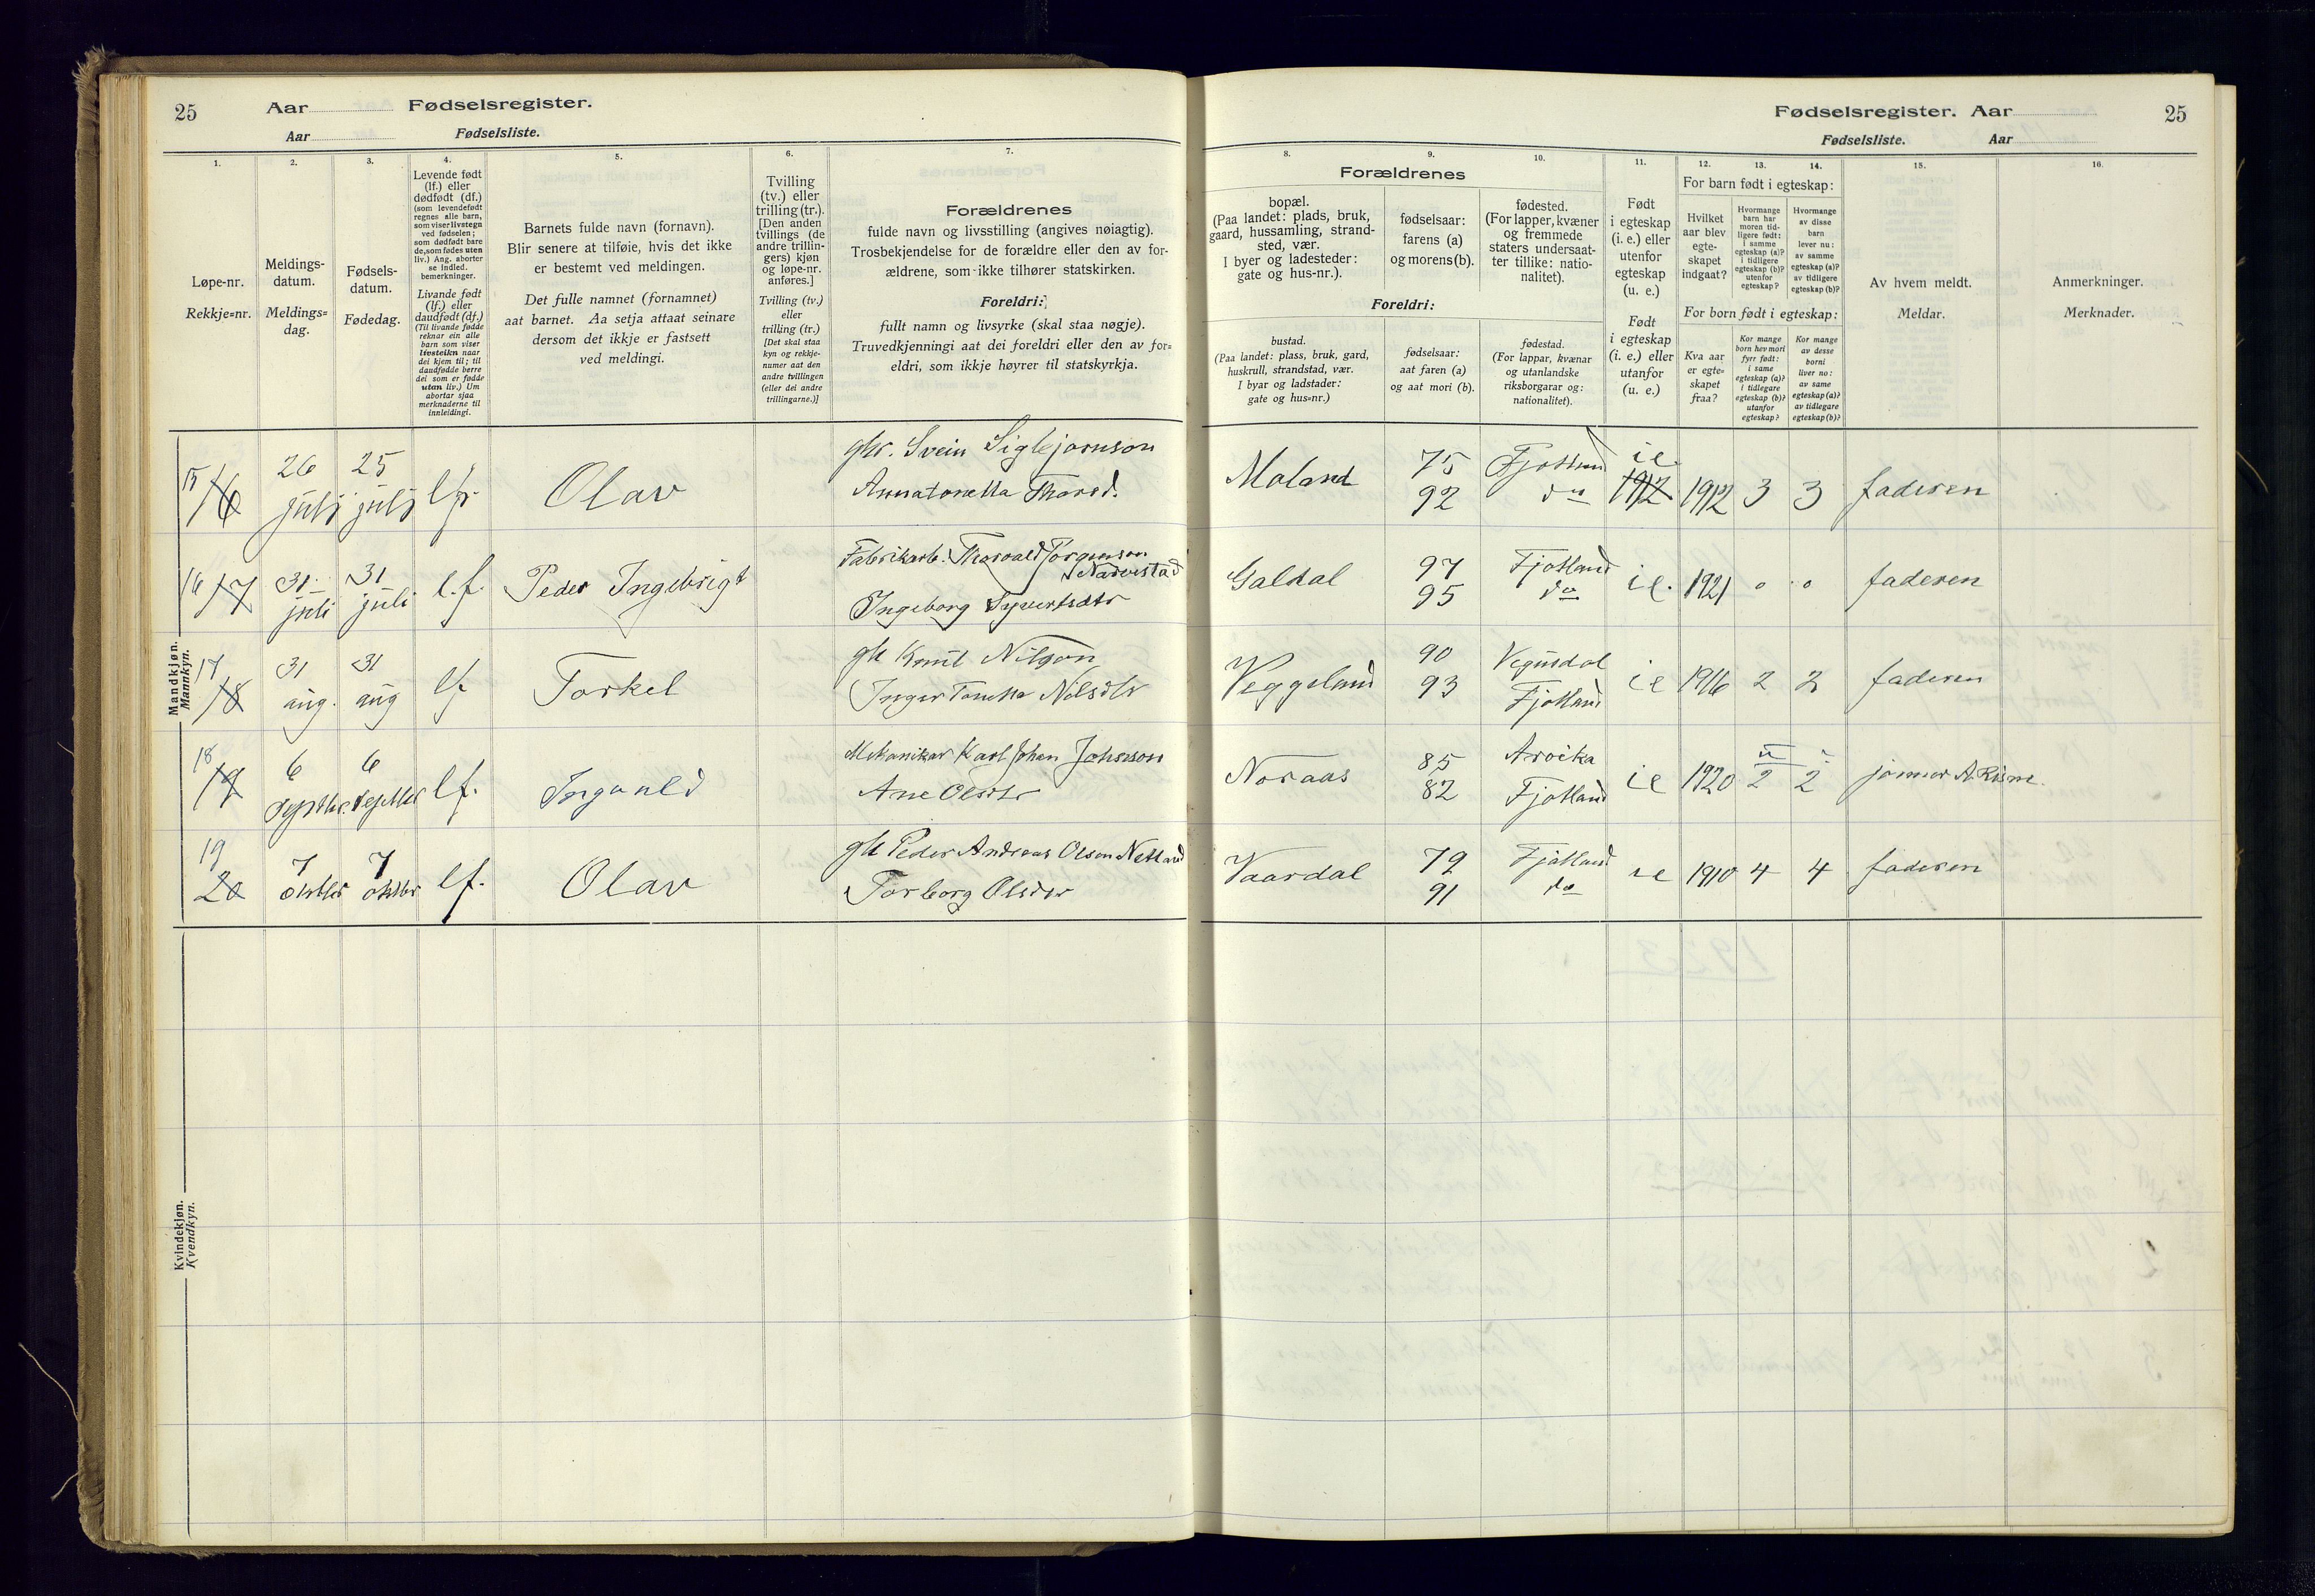 25 Aar Fødselsregister.
Aar Fødselsliste.
Fødselsregister. Aar 25
Fødselsliste. Aar
1.
Løpe-nr.
Rekkje=nr.
2.
Meldings-
datum.
Meldings=
dag.
3.
Fødsels-
datum.
Fødedag.
4.
Levende født
(lf.) eller
dødfødt (df.)
(som levendefødt
regnes alle barn,
som viser livstegn
ved fødselen;
som dødfødt bare
de, som fødes uten
liv.) Ang. aborter
se indled.
bemerkninger.
Livande født
(lf.) eller
daudfødt (df.)
(Til livande fødde
reknar ein alle
barn som viser
livsteikn naar
dei kjem til; til
daudfødde berre
dei som er fødde
utan liv.) Um
abortar sjaa
merknaderne til
innleidingi.
5.
Barnets fulde navn (fornavn).
Blir senere at tilføie, hvis det ikke
er bestemt ved meldingen.
Det fulle namnet (fornamnet)
aat barnet. Aa setja attaat seinare
dersom det ikkje er fastsett
ved meldingi.
6.
Tvilling
(tv.) eller
trilling (tr.).
[Den anden
tvillings (de
andre trillin-
gers) kjøn
og løpe-nr.
anføres.]
Tvilling (tv.)
eller
trilling (tr.)
[Det skal staa
kyn og rekkje-
numer aat den
andre tvillingen
(eller dei andre
trillingarne.)]
7.
Forældrenes
fulde navn og livsstilling (angives nøiagtig).
Trosbekjendelse for de forældre eller den av for-
ældrene, som ikke tilhører statskirken.
Foreldri:
fullt namn og livsyrke (skal staa nøgje).
Truvedkjenningi aat dei foreldri eller den av for=
eldri, som ikkje høyrer til statskyrkja.
Forældrenes
8.
bopæl.
(Paa landet: plads, bruk,
gaard, hussamling, strand-
sted, vær.
I byer og ladesteder:
gate og hus-nr.).
9.
fødselsaar:
farens (a)
og morens (b).
10.
fødested.
(For lapper, kvæner
og fremmede
staters undersaat-
ter tillike: natio-
nalitet).
Foreldri:
bustad.
(Paa landet: plass, bruk, gard,
huskrull, strandstad, vær.
I byar og ladstader:
gate og hus=nr.)
fødselsaar:
aat faren (a)
og aat mori (b).
fødestad.
(For lappar, kvænar
og utanlandske
riksborgarar og:
nationalitet).
11.
Født
i egteskap
(i. e.) eller
utenfor
egteskap
(u. e.)
Født
i egteskap
(i. e.) eller
utanfor
(u. e.)
12. 13. 14.
For barn født i egteskap:
Hvilket
aar blev
egte-
skapet
indgaat?
Hvormange
barn har
moren tid-
ligere født:
i samme
egteskap (a)?
i tidligere
egteskap (b)?
utenfor
egteskap?
Hvormange
av disse
barn
lever nu:
av samme
egteskap (a)?
av tidligere
egteskap (b)?
For born født i egteskap:
Kva aar
er egte=
skapet
fraa?
Kor mange
born hev mori
fyrr født:
i same
egteskap (a)?
i tidlegare
egteskap (b)?
utanfor
egteskap?
Kor mange
av desse
borni
liver no:
av same
egteskap (a)?
av tidlegare
egteskap (b)?
15.
Av hvem meldt.
Meldar.
16.
Anmerkninger.
Merknader.
Mandkjøn.
Mannkyn.
15 16 26 juli 25 juli lf. Olav
gbr. Svein Sigbjørnson
Annatonetta Thorsd.
Moland 75 92 Fjotland do ie 1912 1912 3 3 faderen
16 17 31 juli 31 juli l.f. Peder Ingebrigt
Fabrikarb. Thorvald Jørgenson
Narvestad
Ingeborg Syvertsdtr
Galdal 97 95 Fjotland do ie. 1921 0 0 faderen
17 18 31 aug. 31 aug lf Torkel
gbr Knut Nilson
Inger Tonetta Nilsdtr
Veggeland 90 93 Vegusdal Fjotland ie 1916 2 2 faderen
18 19 6 septbr. 6 septbr lf. Ingvald
Mekaniker Karl Johan Johnsson
Ane Olsdtr
Noraas 85 82 Arvika Fjotland ie 1920 2 2 jormor A. Risne.
19 20 7 oktbr 7 oktbr lf. Olav
gbr Peder Andreas Olsen Netland
Torborg Olsdtr
Vaardal 79 91 Fjotland do ie 1910 4 4 faderen
Kvindekjøn.
Kvendkyn.